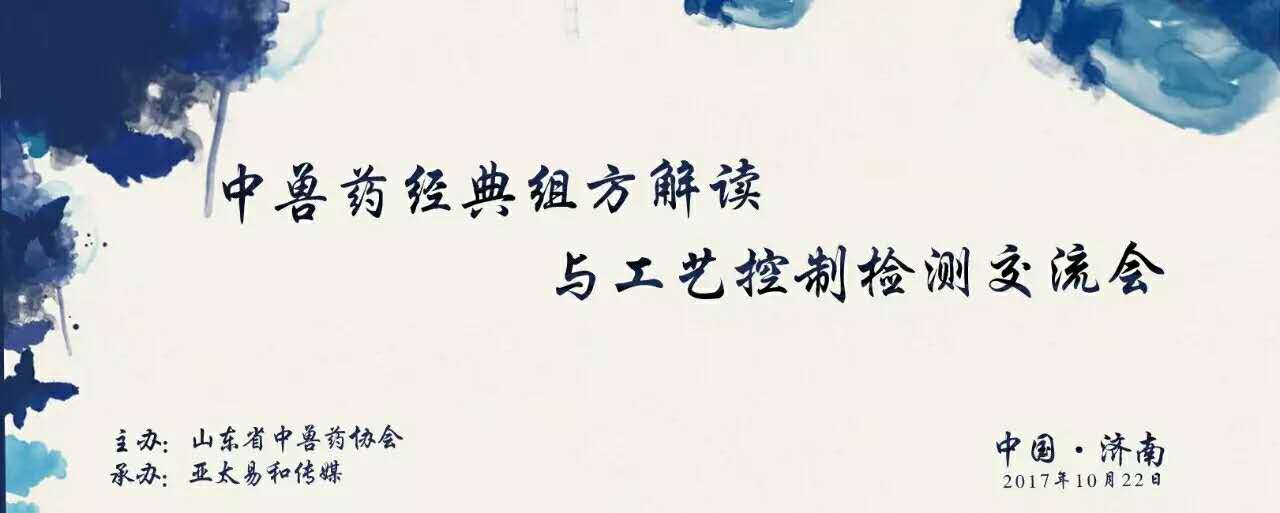 中兽药经典组方解读
与工艺控制检测交流会
主办：山东省中兽药协会
承办：亚太易和传媒
中国·济南
2017年10月22日